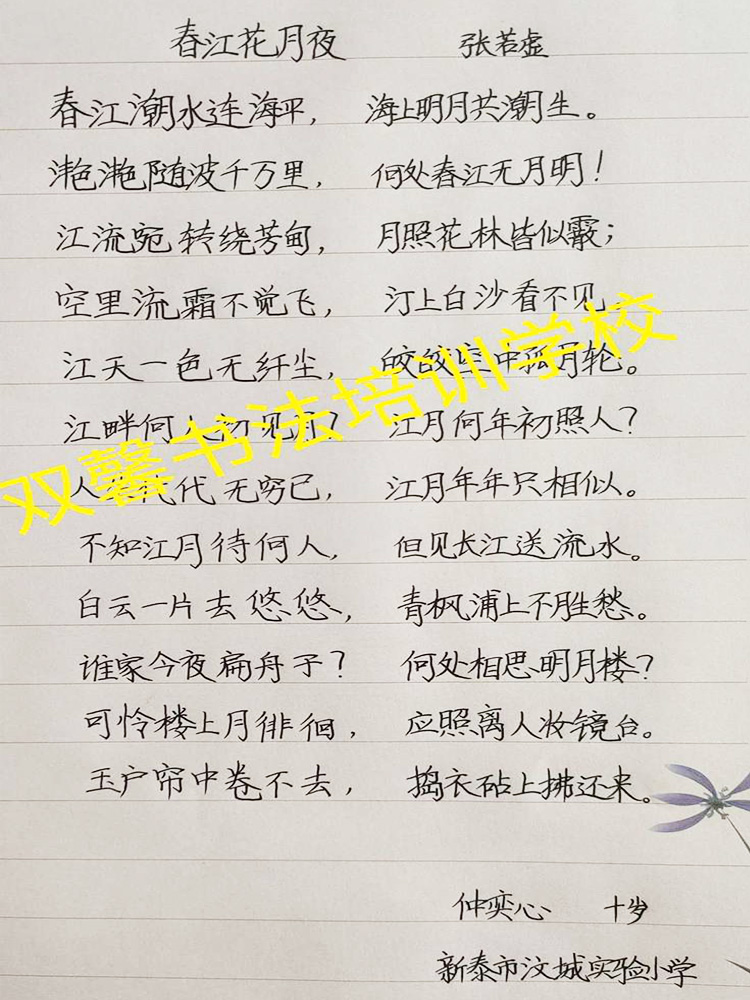 春江花月夜 张若虚
春江潮水连海平， 海上明月共潮生。
滟滟随波千万里， 何处春江无月明！
江流宛转绕芳甸， 月照花林皆似霰；
空里流霜不觉飞， 汀上白沙看不见
江天一色无纤尘， 皎皎空中孤月轮。
江畔何人初见月？ 江月何年初照人？
人代代无穷已， 江月年年只相似。
不知江月待何人， 但见长江送流水。
白云一片去悠悠， 青枫浦上不胜愁。
谁家今夜扁舟子？ 何处相思明月楼？
可怜楼上月徘徊， 应照离人妆镜台。
玉户帘中卷不去， 捣衣砧上拂还来。
仲奕心 十岁
新泰市汶城实验小学
双馨书法培训学校